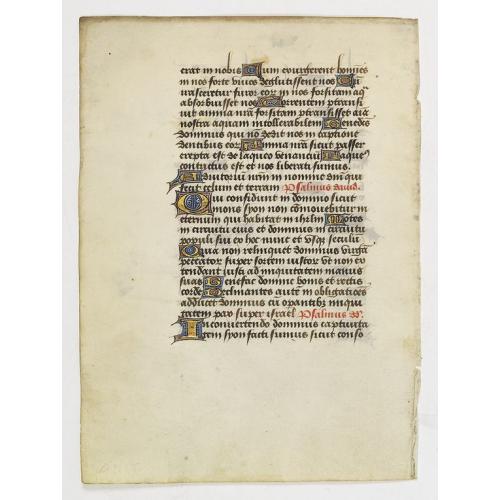 erat in nobis Cum exurgerent homines
in nos forte vivos deglutissent nos Cu
irasceretur furor eor in nos forsitan aq
absorbuisset nos Torrentem ptransi
vit anima nra forsitan ptransisset aia
nostra aquam intollerabilem Benedic
dominus qui no dedit nos in captione
dentibus eor Anima nra sicut passer
erepta est de laqueo venantiu Laque
contritus est et nos liberati sumus
Adiutoriu nrm in nomine dni qui
fecit celum et terram Psalmus david.
Qui confidunt in domino sicut
mons syon non comovebitur in
eternum qui habitat in ihrlm Motes
in circuitu eius et dominus in circuitu
populi sui ex hoc nunc et usq seculu
Quia non relinquet dominus virga
peccator super sortem iustor ut non ex
tendant iusti ad iniquitatem manus
suas Benefac domine bonis et rectis
corde Declinantes aute in obligatiões
adducet dominus cu operantibz iniqui
tatem pax super israel Psalmus dd.
In convertendo dominus captivita
tem syon facti sumus sicut conso